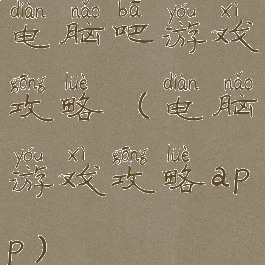 diàn nǎo bā yóu xì
电脑吧游戏
gōng lüè diàn nǎo
攻略(电脑
yóu xì gōng lüè
游戏攻略ap
p)